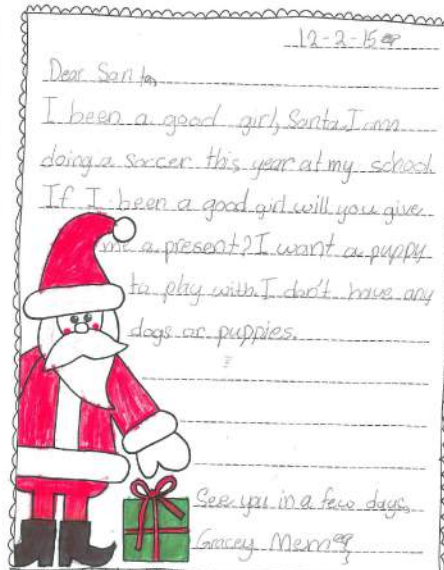 12-2-15
Dear Santa,
I been a good girl, Santa. I am
doing a soccer this year at my school
If I been a good girl will you give
me a present? I want a puppy
to play with. I don't have any
dogs or puppies.
See you in a few days,
Gracey